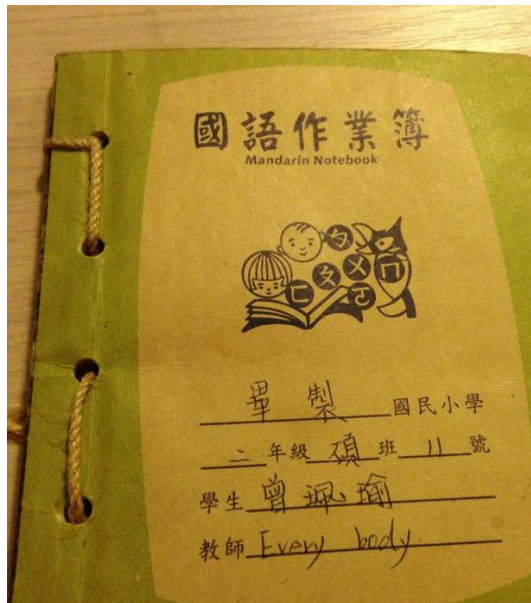 國語作業簿
Mandarin Notebook
ㄅ
ㄈㄆㄨㄇ
ㄛ
畢製國民小學
二年級碩班11號
學生曾珮瑜
教師Every body